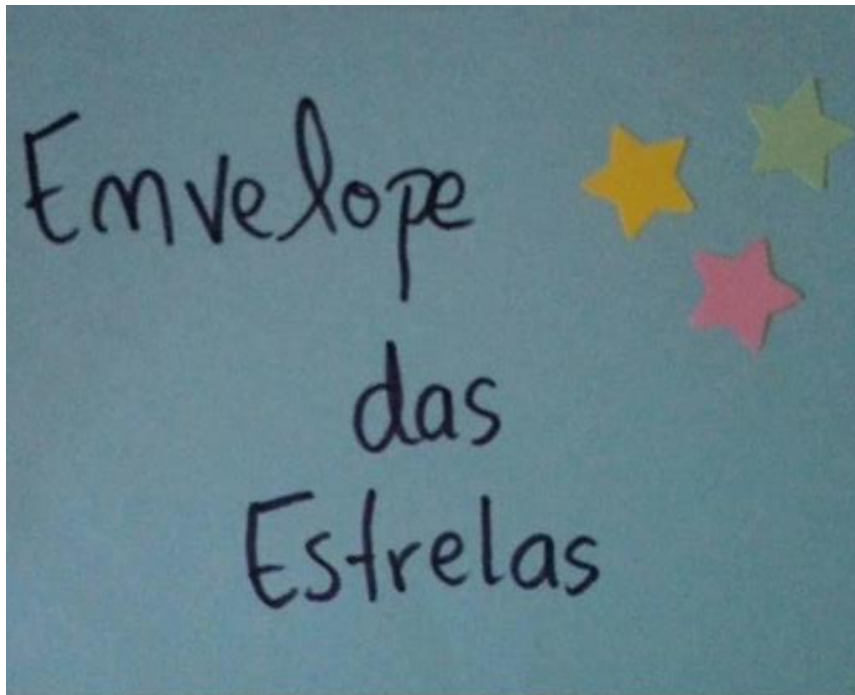 Envelope
das
Estrelas